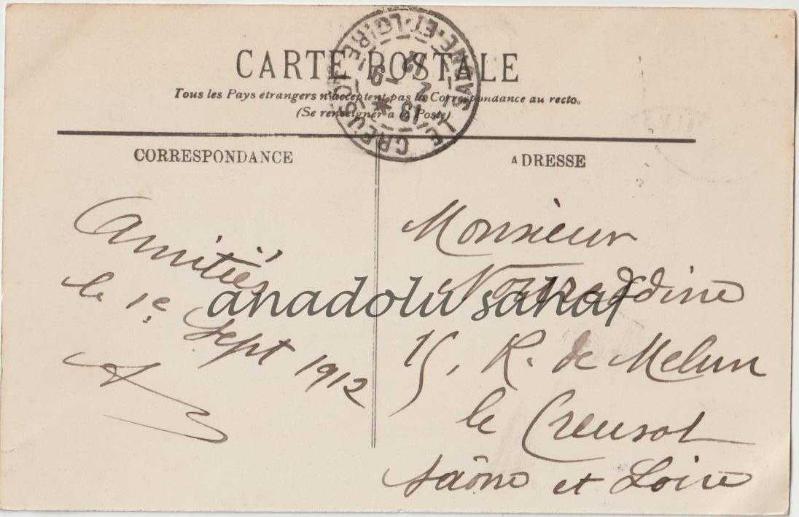 CARTE POSTALE
Tous les Pays étrangers n'acceptent pas la Correspondance au recto.
(Se renseigner à la Poste)
LE CREUSOT
SAONE-ET-LOIRE
CORRESPONDANCE
ADRESSE
Amitiés
le 1e Sept 1912
Monsieur
Noureddine
15, R. de Melun
le Creusot
Saône et Loire
anadolu sahaf